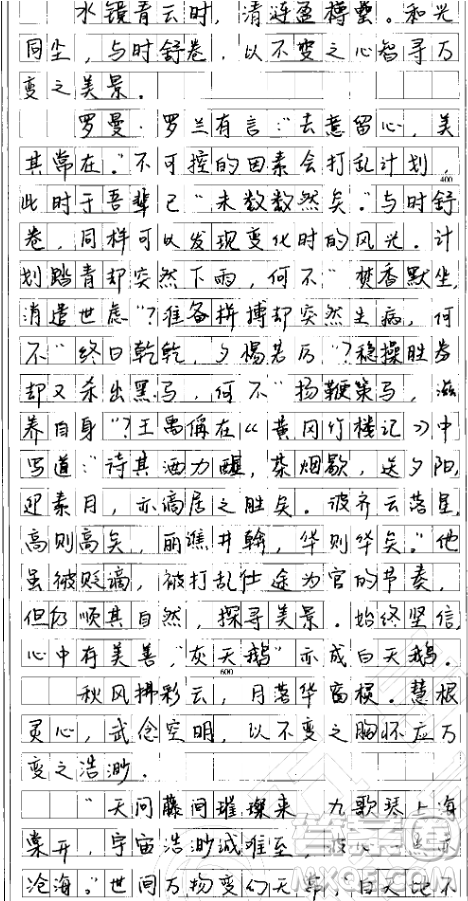 水镜青云时，清涟盈樽罍。和光
同尘，与时舒卷，以不变之心智寻万
变之美景。
罗曼·罗兰有言：“去意留心，美
其常在。”不可控的因素会打乱计划，
400
此时于吾辈已“未数数然矣。”与时舒
卷，同样可以发现变化时的风光。计
划踏青却突然下雨，何不“焚香默坐，
消遣世虑”？准备拼搏却突然生病，何
不“终日乾乾，夕惕若厉”？稳操胜券
却又杀出黑马，何不“扬鞭策马，滋
养自身”？王禹偁在《黄冈竹楼记》中
写道：“待其酒力醒，茶烟歇，送夕阳，
迎素月，亦谪居之胜矣。彼齐云落星，
高则高矣，丽谯井榦，华则华矣。”他
虽被贬谪，被打乱仕途为官的节奏，
但仍顺其自然，探寻美景。始终坚信
心中有美善，“灰天鹅”亦成白天鹅。
600
秋风拂彩云，月落华窗横。慧根
灵心，武念空明，以不变之胸怀应万
变之浩渺。
“天问藤间璀璨来，九歌琴上海
棠开，宇宙浩渺诚难至，
沧海。”世间万物变幻无常，自天地不